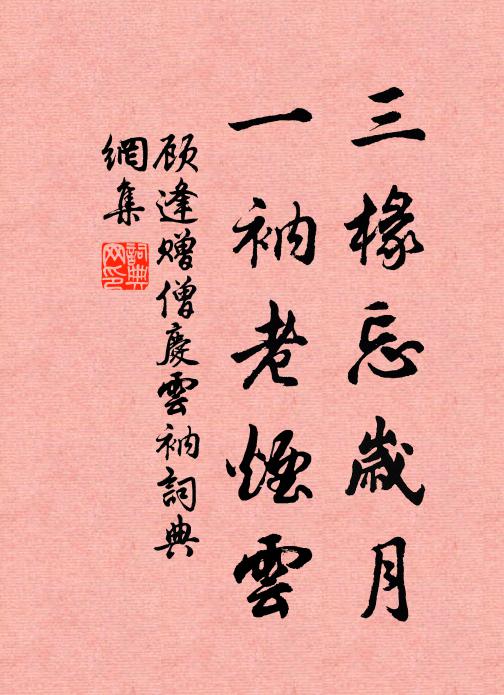 三椽忘歲月
一衲老煙雲
顧逢贈僧慶雲衲詞典
網集
詞典網印